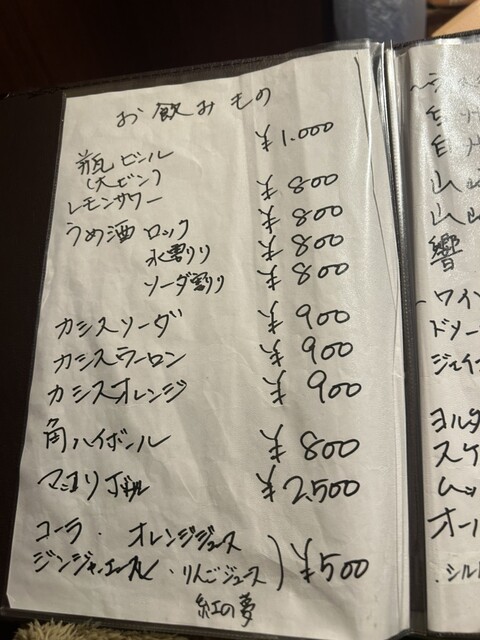 お飲みもの
瓶ビール ¥1.000
(大ビン)
レモンサワー ¥800
うめ酒 ロック ¥800
水割り ¥800
ソーダ割り ¥800
カシスソーダ ¥900
カシスウーロン ¥900
カシスオレンジ ¥900
角ハイボール ¥800
マッコリボトル ¥2,500
コーラ・オレンジジュース
ジンジャエール・りんごジュース ) ¥500
紅の夢
山
山
響
ワイ
ドメー
ジェイ
ヨルダ
スケ
ムッ
オー
シル